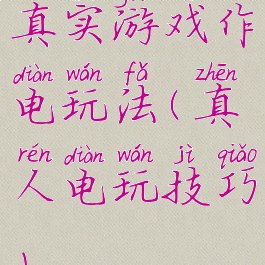 真实游戏作
diàn wán fǎ zhēn
电玩法(真
rén diàn wán jì qiǎo
人电玩技巧